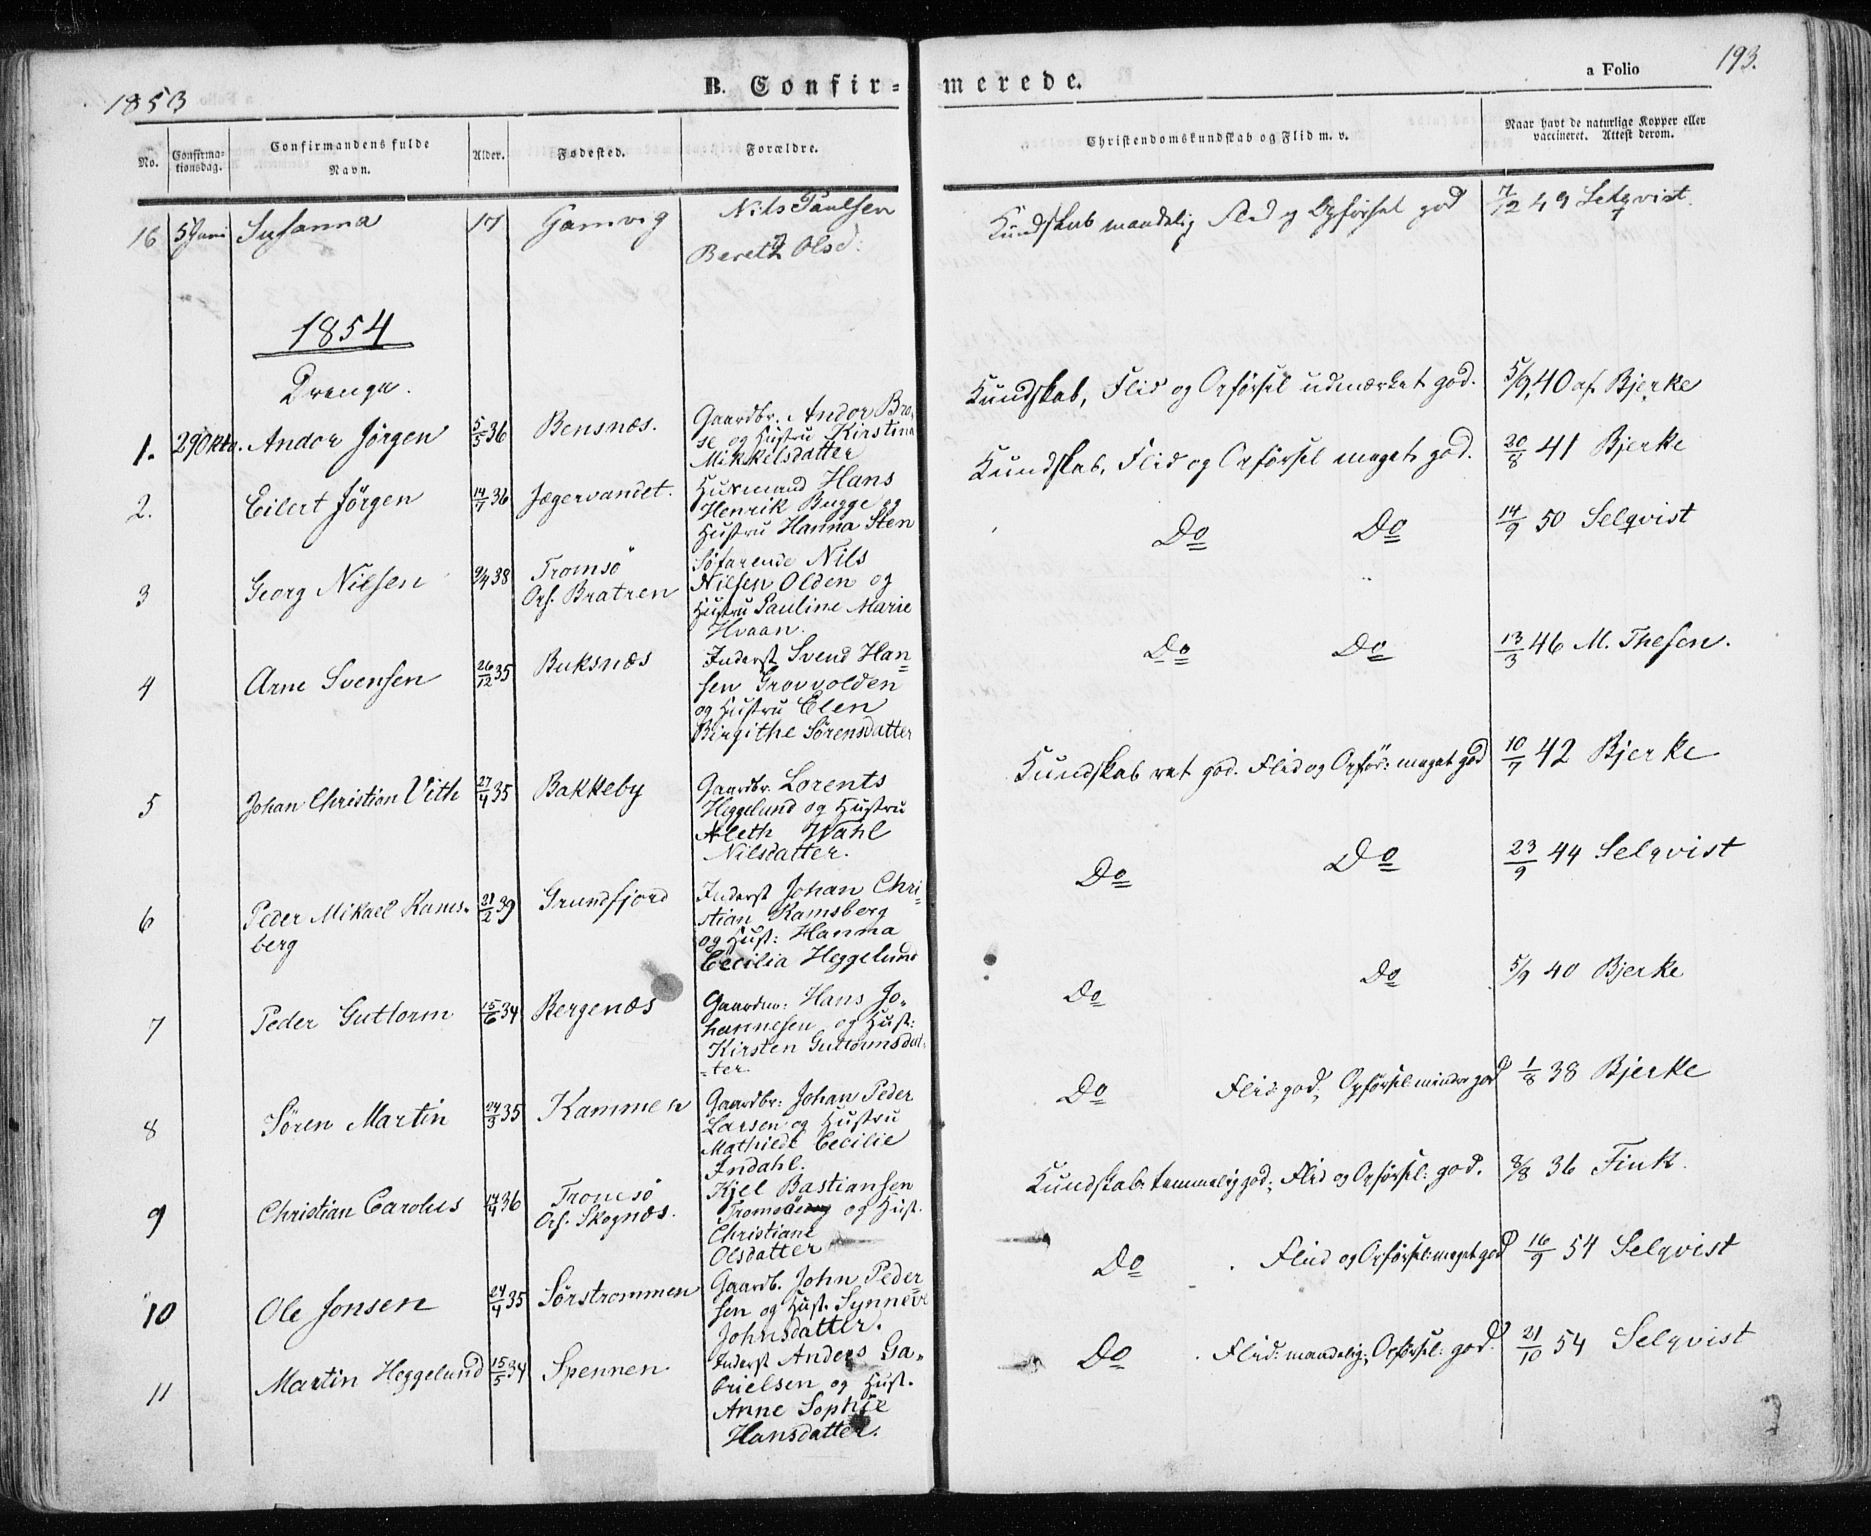 1853
B. Confir- merede.
a Folio 193.
No. Confirmationsdag. Confirmandens fulde Navn. Alder. Fødested. Forældre. Christendomskundskab og Flid m. v. Naar havt de naturlige Kopper eller vaccineret. Attest derom.
16 5 Juni Susanna 17 Gamvig Nils Paulsen Kundskab maadelig Flid og Opførsel god 7/12 49 Selqvist.
Beret Olsd:
1854
Drenge.
1. 29 Oktr. Andor Jørgen 5/5 36 Bensnæs. Gaardbr. Andor Bro- Kundskab, Flid og Opførsel udmærket god. 5/9 40 af Bjerke
se og Hustru Kirstina
Mikkelsdatter
2. Eilert Jörgen 14/7 36 Jægervandet. Husmand Hans Kundskab, Flid og Opførsel meget god. 20/8 41 Bjerke
Henrik Bugge og
Hustru Hanna Sten
3 Georg Nilsen 9/4 38 Tromsö Søfarende Nils Do Do 14/9 50 Selqvist
Ops. Bratren Nilsen Olden og
Hustru Pauline Marie
Hvaan.
4 Arne Svensen 26/12 35 Buksnæs Inderst Svend Han= Do Do 13/3 46 M. Thesen.
sen Grovvolden
og Hustru Elen
Birgithe Sørensdatter
5 Johan Christian Vith 27/4 35 Bakkeby Gaardbr. Lorents Kundskab ret god. Flid og Opför: meget god 10/7 42 Bjerke
Heggelund og Hustru
Aleth Wahl
Nilsdatter.
6 Peder Mikael Rams- 21/2 39 Grundfjord Inderst Johan Chri- Do Do 23/9 44 Selqvist
berg stian Ramsberg
og Hust: Hanna
Cecilia Heggelund
7 Peder Guttorm 15/6 34 Bergenæs Gaardm: Hans Jo- Do Do 5/9 40 Bjerke
hannesen og Hust:
Kirsten Guttormsdat-
-ter.
8 Sören Martin 24/3 35 Kammen Gaardbr: Johan Peder Do Flid god; Opførsel mindre god 1/8 38 Bjerke
Larsen og Hustru
Mathilde Cecilie
Indahl.
9 Christian Carolus 14/4 36 Tromsö Kjel Bastiansen Kundskab: temmelig god; Flid og Opførsel: god. 8/8 36 Fink.
Ops. Skognæs. og Hust.
Christiane
Olsdatter
10 Ole Jonsen 24/4 35 Sörstrommen Gaardb. John Peder= Do Flid og Opførsel: meget god 16/9 54 Selqvist
sen og Hust. Synneve
Johnsdatter.
11 Martin Heggelund 15/5 34 Spennen Inderst Anders Ga- Do Flid: maadelig; Opførsel: god. 21/10 54 Selqvist
brielsen og Hust.
Anne Sophie
Hansdatter.